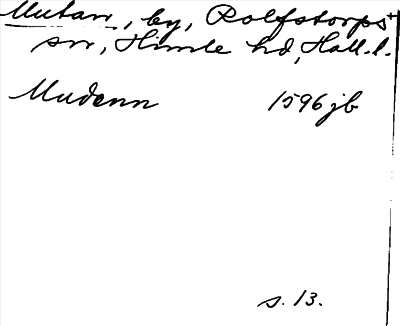 Mutan, by, Rolfstorps
sn, Himle hd, Hall. l.
Mudenn 1596 jb
s. 13.